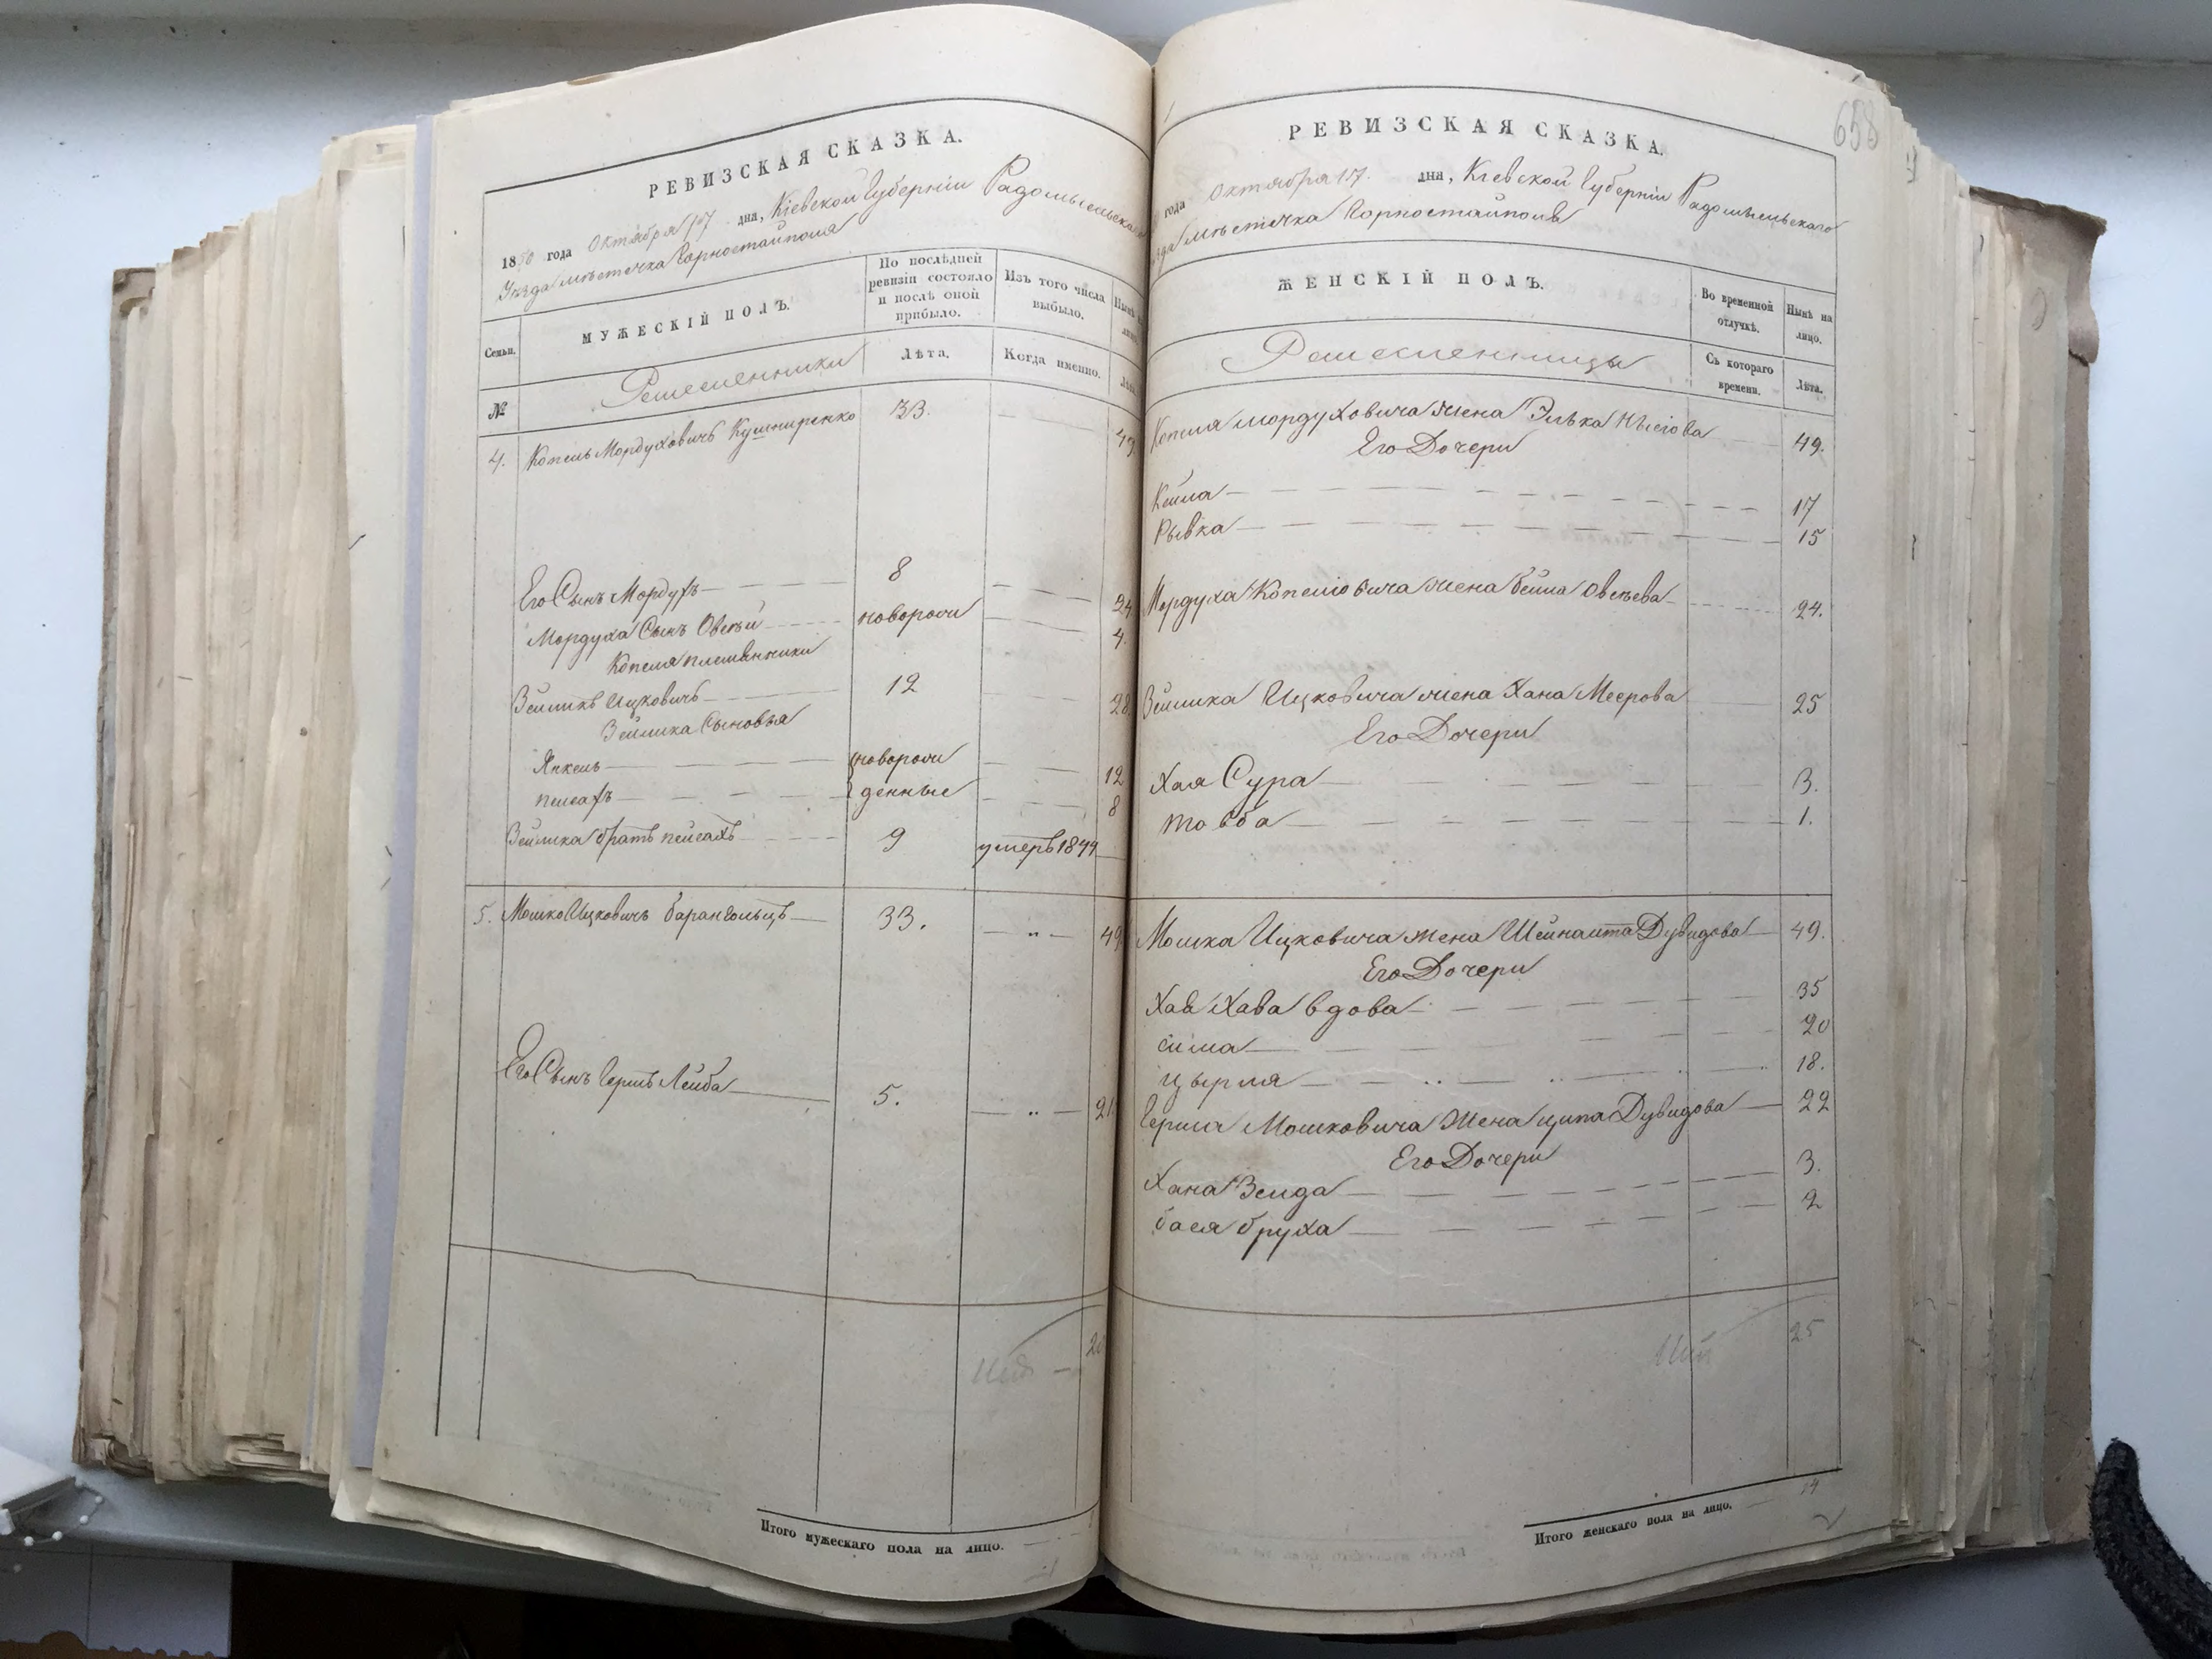 РЕВИЗСКАЯ СКАЗКА.
1850 года Октября 17 дня, Кіевской Губерніи Радомысльскаго
Уѣзда мѣстечка Горностайполя
Семьи.
МУЖЕСКІЙ ПОЛЪ.
По послѣдней ревизіи состояло и послѣ оной прибыло.
Изъ того числа выбыло.
Нынѣ на лицо.
№
Ремесленники
Лѣта.
Когда именно.
Лѣта.
4. Копель Мордуховичъ Кушниренко 33. 49
Его Сынъ Мордухъ 8 24
Мордуха Сынъ Овсѣй новорож 4.
Копеля племянники
Зейликъ Ицковичъ 12 28
Зейлика Сыновья
Янкель новорож 12
Пейсахъ денные 8
Зейлика братъ Пейсахъ 9 умеръ 1844
5. Мошко Ицковичъ Барангольцъ 33. 49
Его Сынъ Гершъ Лейба 5. 21
20
Итого мужескаго пола на лицо.
658
РЕВИЗСКАЯ СКАЗКА.
года Октября 17. дня, Кіевской Губерніи Радомысльскаго
Уѣзда мѣстечка Горностайполя
ЖЕНСКІЙ ПОЛЪ.
Во временной отлучкѣ.
Нынѣ на лицо.
Ремесленницы
Съ котораго времени.
Лѣта.
Копеля Мордуховича жена Элька 49.
Его Дочери
Кейла 17
Рывка 15
Мордуха Копелiовича жена Бейла Овсѣева 24.
Зейлика Ицковича жена Хана Меерова 25
Его Дочери
Хая Сура 3.
Товба 1.
Мошка Ицковича жена Дувидова 49.
Его Дочери
Хая Хава вдова 35
Сима 20
Цырля 18.
Герша Мошковича Жена Ципа Дувидова 22
Его Дочери
Хана Зелда 3.
Бася Бруха 2
25
Итого женскаго пола на лицо. 14